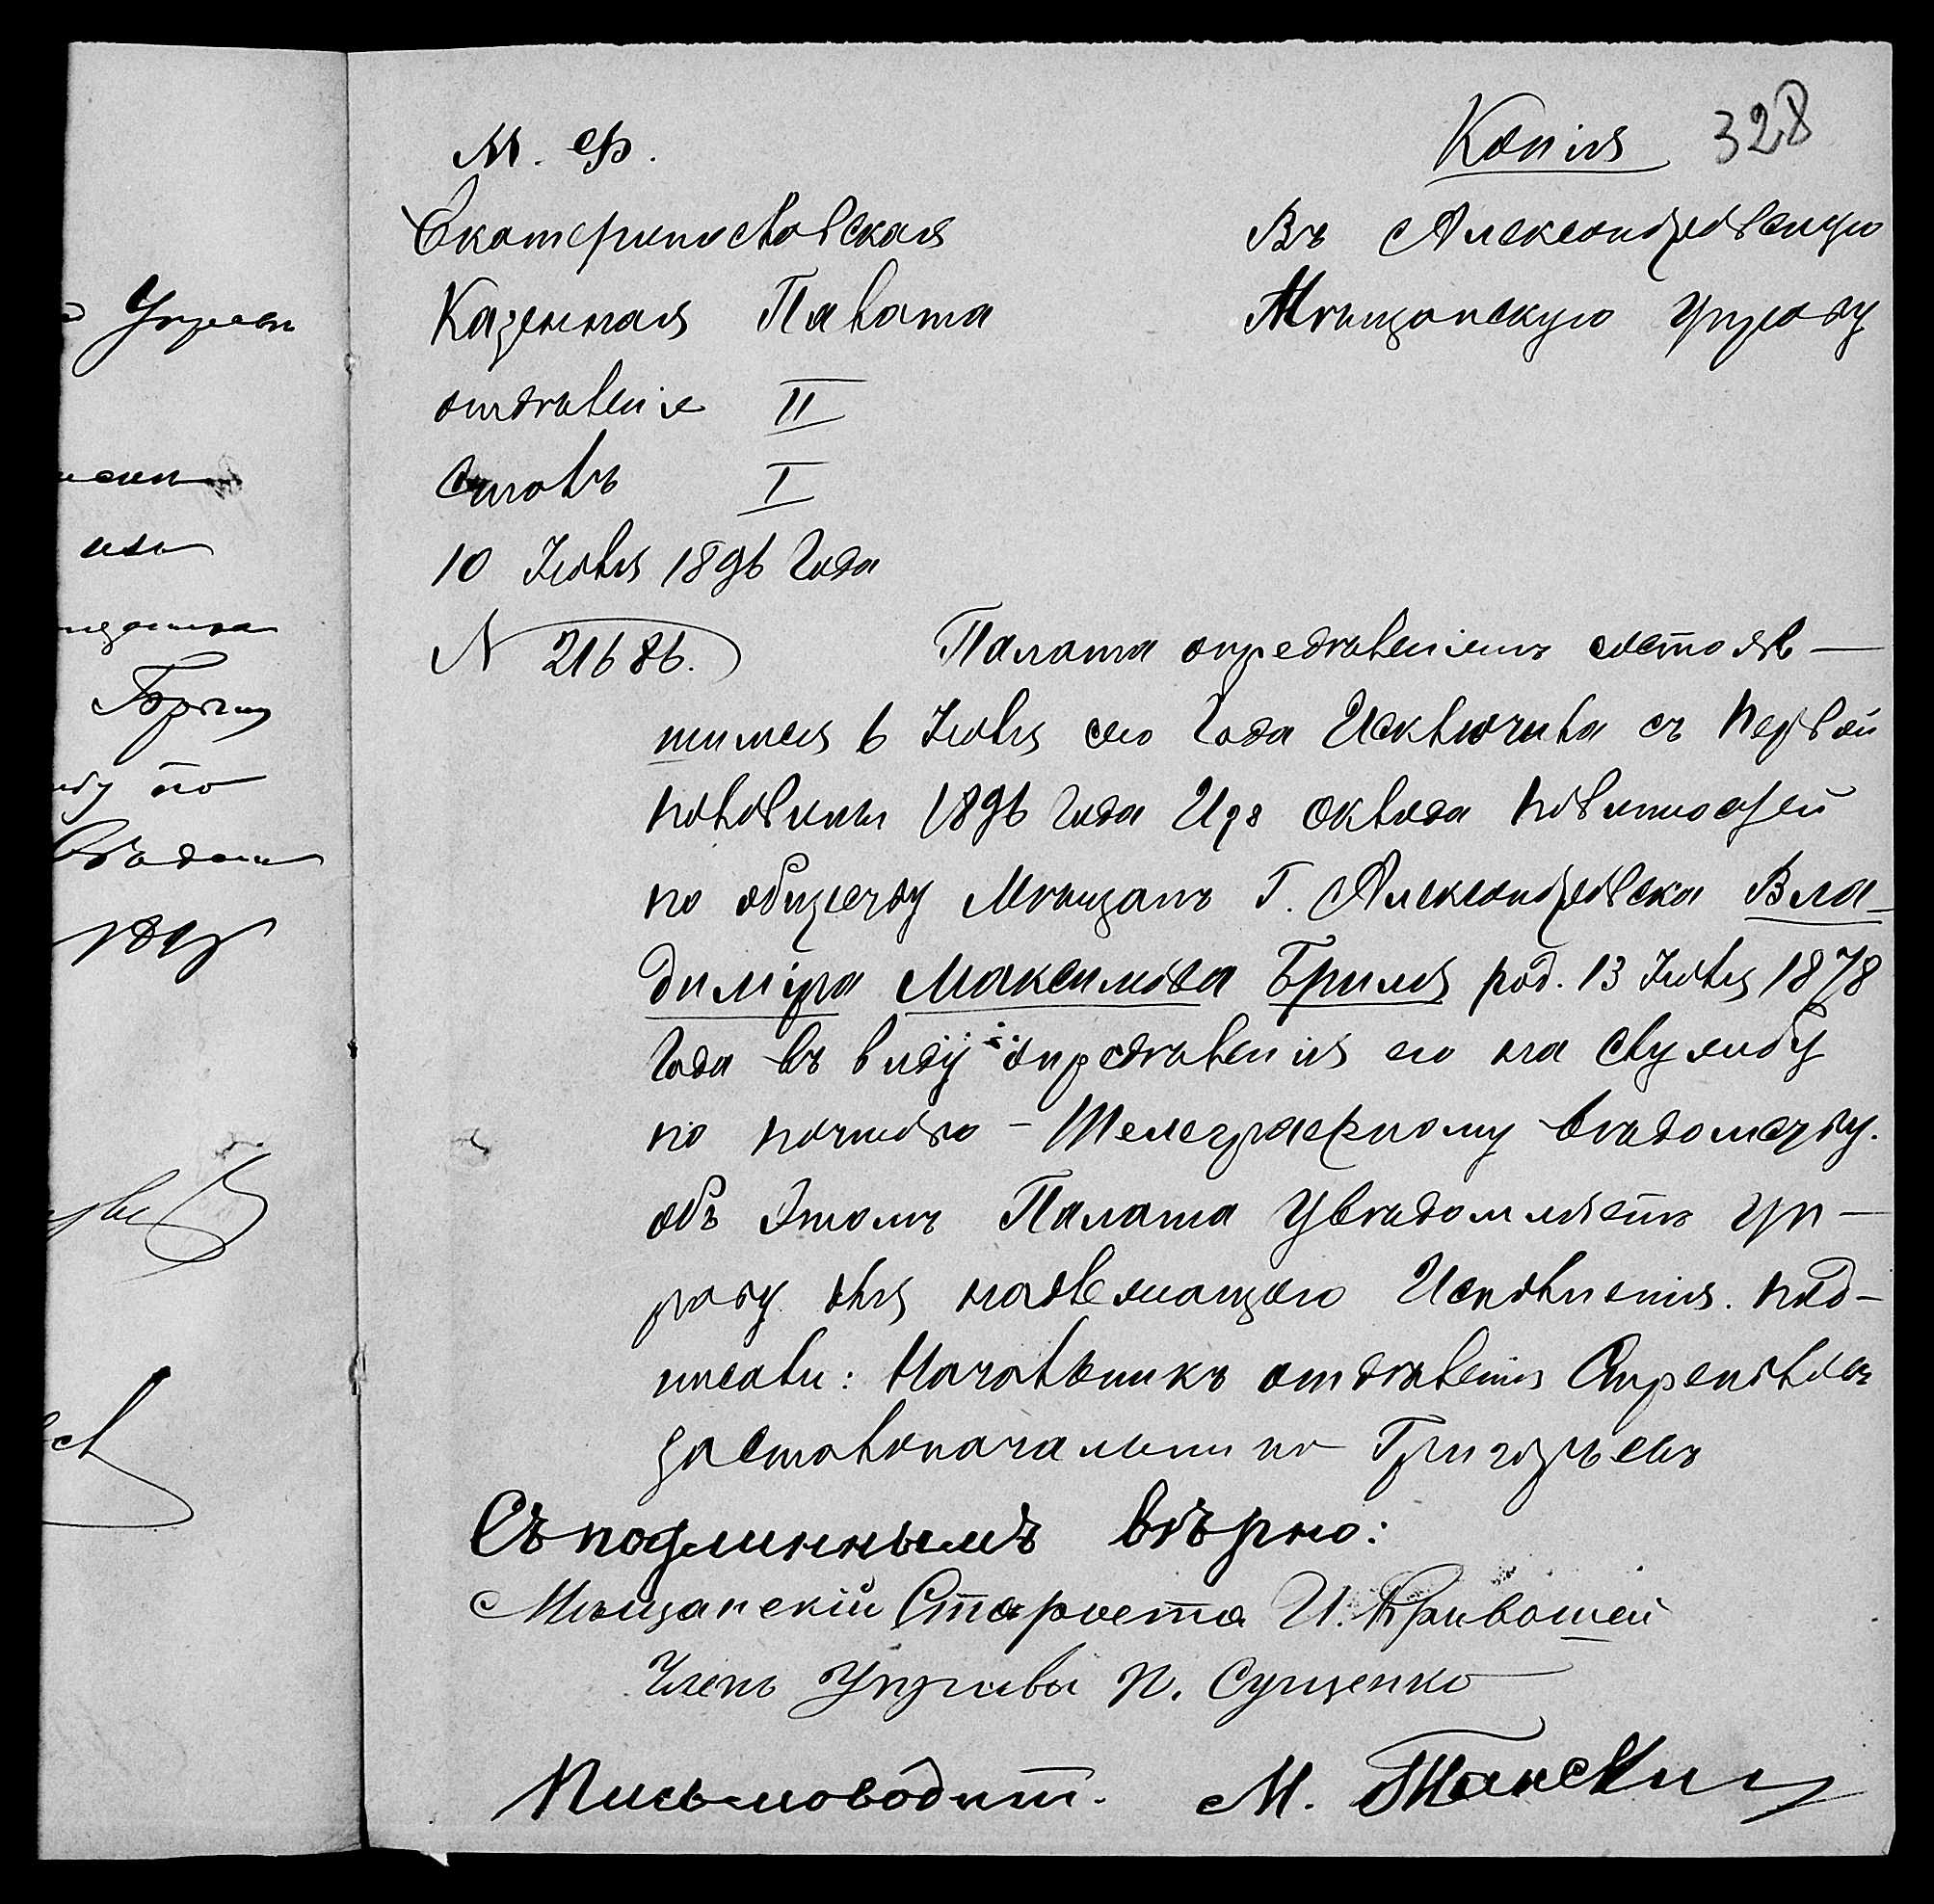 Управы
Копія 328
М. Ф.
Екатеринославская
Казенная Палата
отдѣленіе II
Столъ I
10 Іюля 1896 Года
N 21686.
Въ Александровскую
Мѣщанскую Управу
Палата опредѣленіемъ состояв-
шимся 6 Іюля сего Года Исключила съ первой
половины 1896 Года Изъ Оклада повинностей
по обществу Мѣщанъ Г. Александровска Вла-
диміра Максимова Бриля род. 13 Іюля 1878
Года въ виду опредѣленія его на службу
по почтово-Телеграфному вѣдомству.
объ Этомъ Палата Увѣдомляетъ Уп-
раву для надлежащаго Исполненія. под-
писали: Начальникъ отдѣленія
за Столоначальника Григорьевъ
Съ подлиннымъ вѣрно:
Мѣщанскій Староста И. Кривошей
Членъ Управы П. Сущенко
Письмоводит. М.